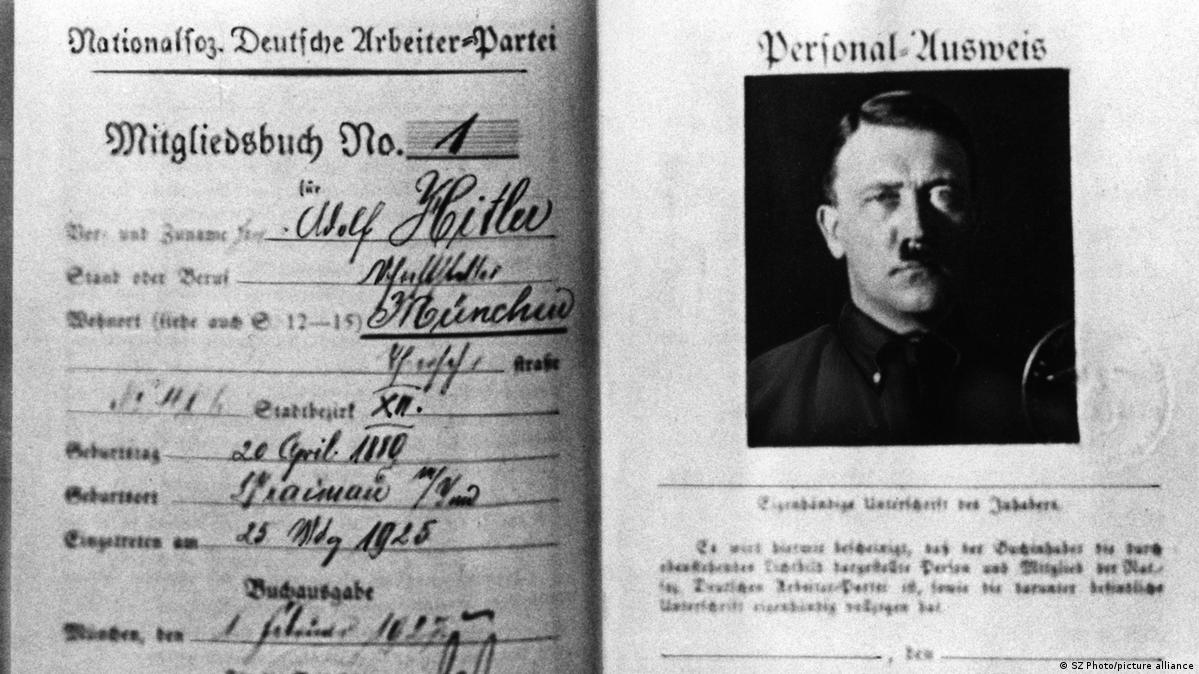 Nationalsoz. Deutsche Arbeiter-Partei
Mitgliedsbuch No. 1
für
Vor- und Zuname Adolf Hitler
Stand oder Beruf Schriftsteller
Wohnort (siehe auch S. 12—15) München
straße
Stadtbezirk XII.
Geburtstag 20 April 1889
Geburtsort Braunau
Eingetreten am 25 1925
Buchausgabe
München, den 1 1927
Personal-Ausweis
Eigenhändige Unterschrift des Inhabers.
Es wird hiermit bescheinigt, daß der Buchinhaber die durch
obenstehendes Lichtbild dargestellte Person und Mitglied der Nat.-
soz. Deutschen Arbeiter-Partei ist, sowie die darunter befindliche
Unterschrift eigenhändig vollzogen hat.
, den
© SZ Photo/picture alliance